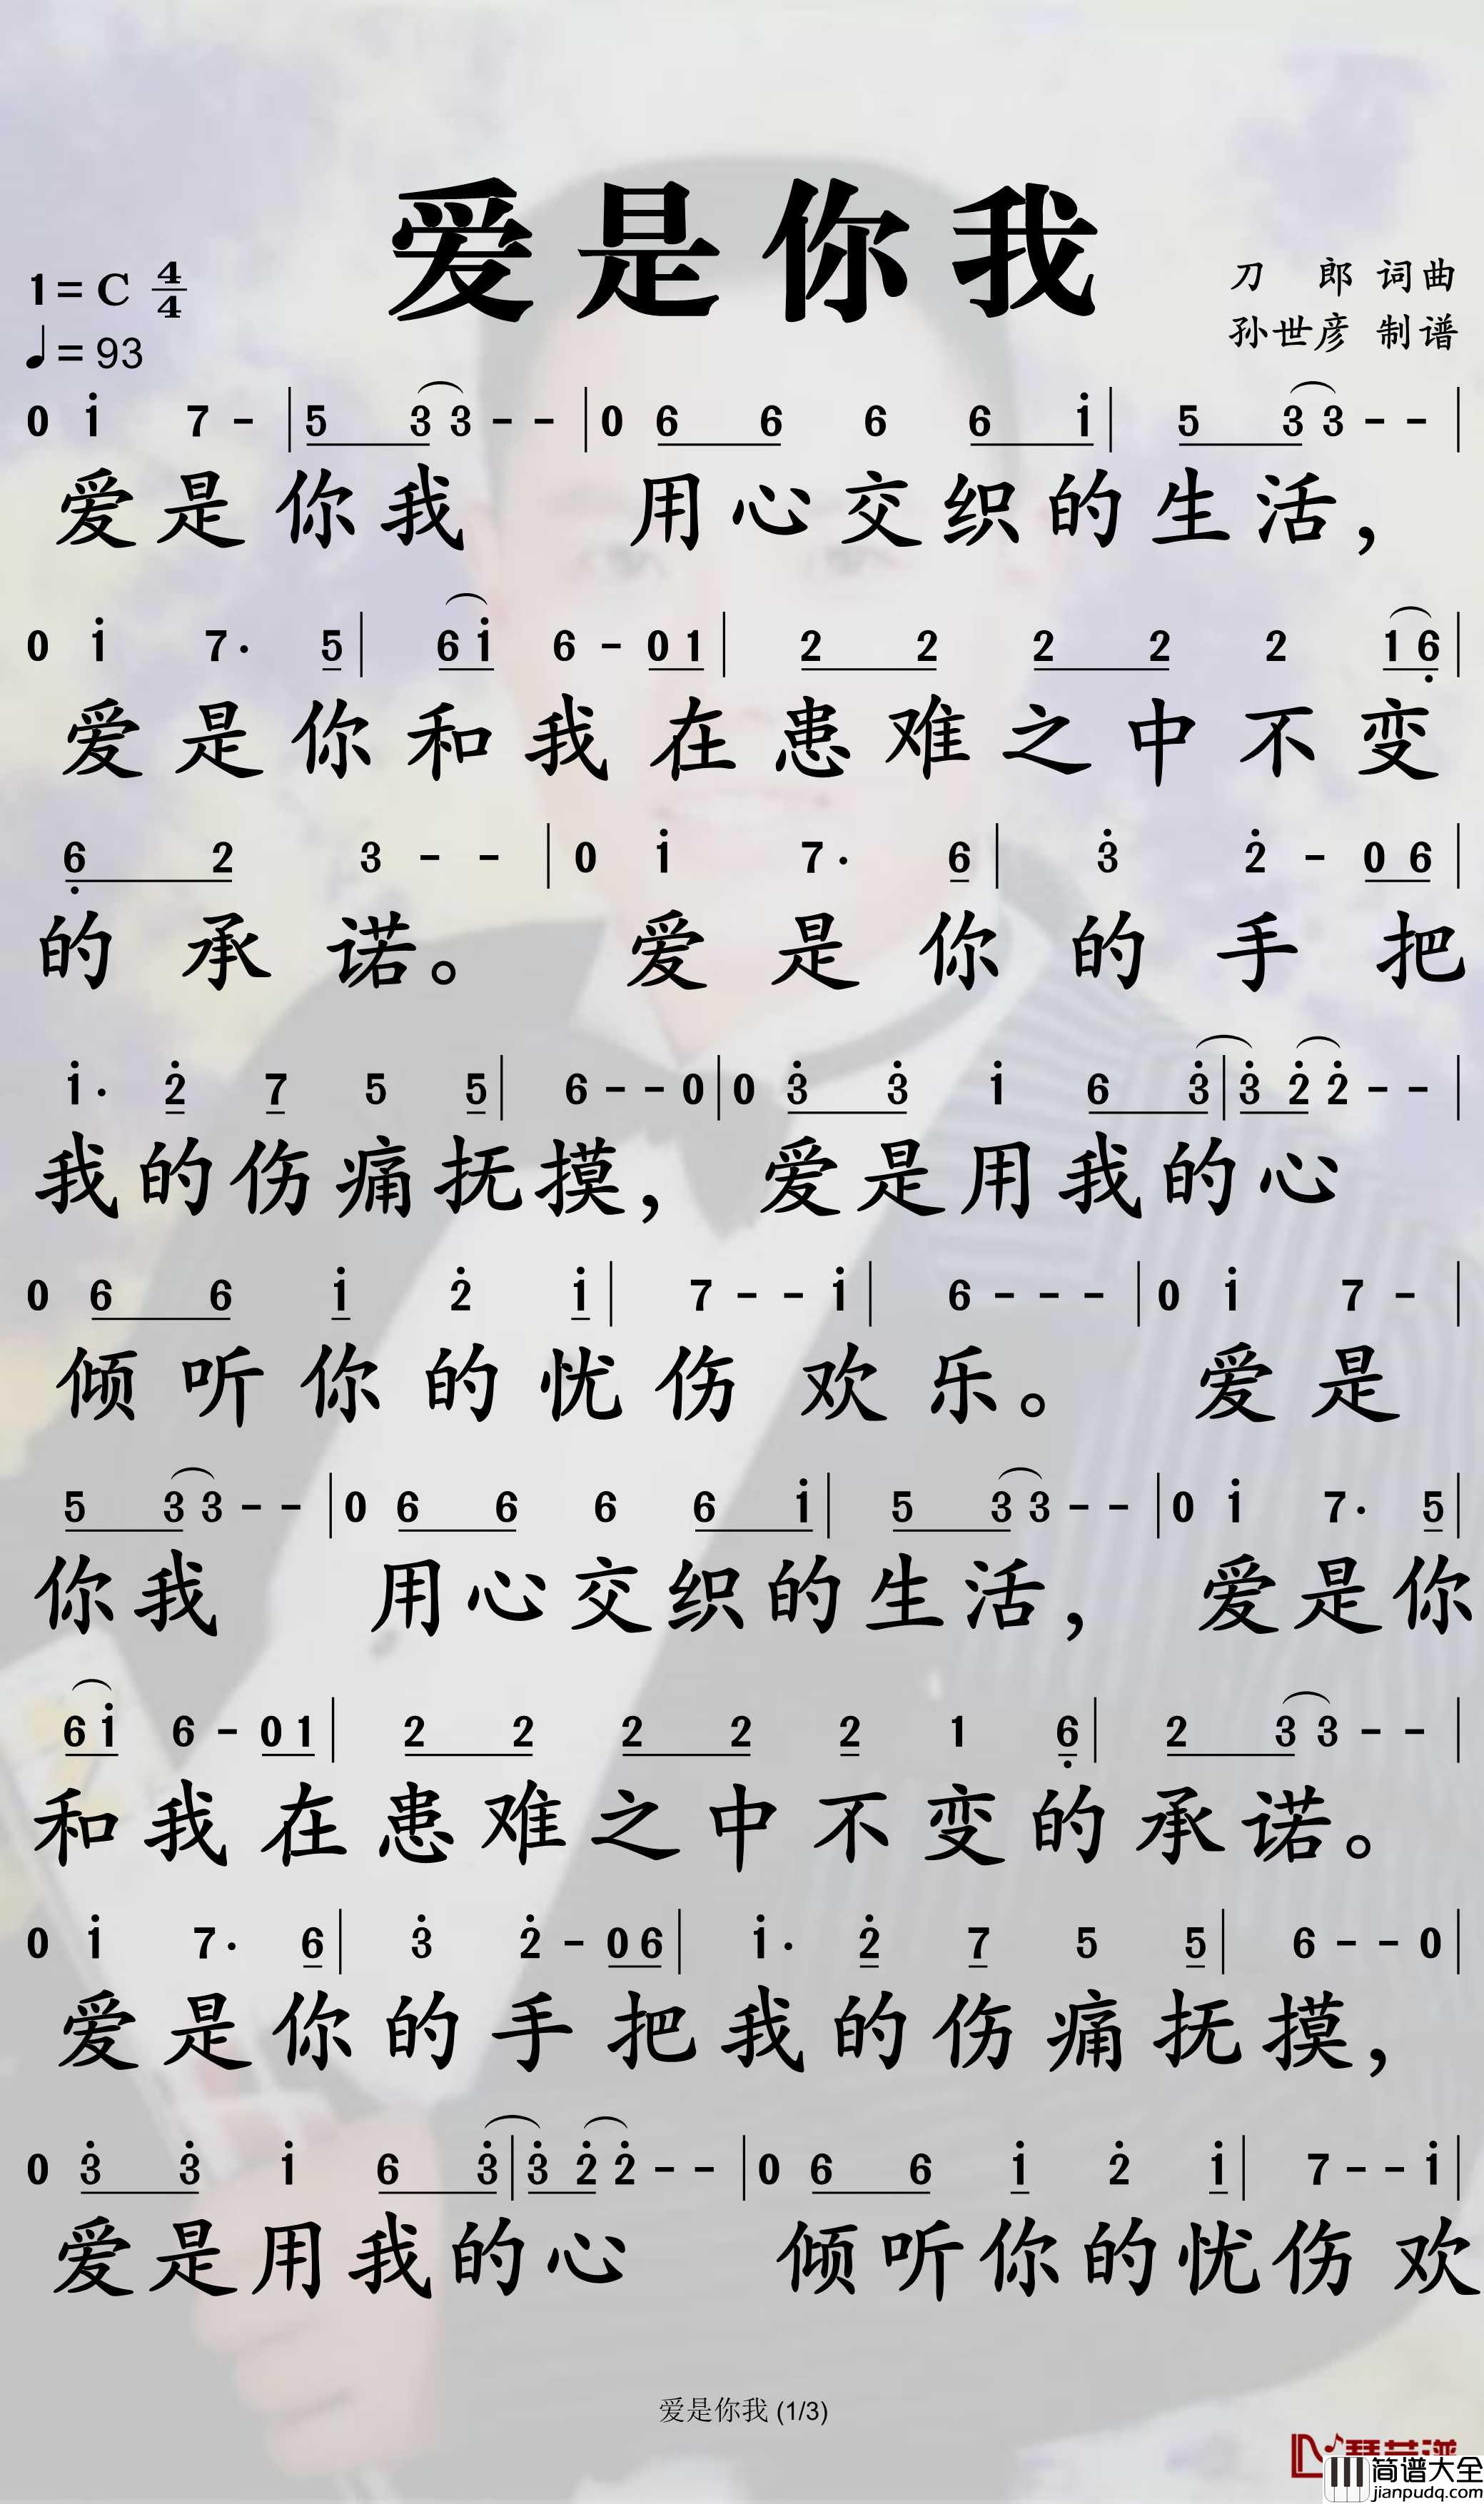 爱是你我
1=C 4/4
♩=93
刀 郎 词曲
孙世彦 制谱
0 i̇ 7 - | 5 3 3 - - | 0 6 6 6 6 i̇ | 5 3 3 - - |
爱是你我 用心交织的生活，
0 i̇ 7· 5 | 6 i̇ 6 - 0 1 | 2 2 2 2 2 1 6̣ |
爱是你和我在患难之中不变
6̣ 2 3 - - | 0 i̇ 7· 6 | 3̇ 2̇ - 0 6 |
的承诺。 爱是你的手把
i̇· 2̇ 7 5 5 | 6 - - 0 | 0 3̇ 3̇ i̇ 6 3̇ | 3̇ 2̇ 2̇ - - |
我的伤痛抚摸， 爱是用我的心
0 6 6 i̇ 2̇ i̇ | 7 - - i̇ | 6 - - - | 0 i̇ 7 - |
倾听你的忧伤欢乐。 爱是
5 3 3 - - | 0 6 6 6 6 i̇ | 5 3 3 - - | 0 i̇ 7· 5 |
你我 用心交织的生活， 爱是你
6 i̇ 6 - 0 1 | 2 2 2 2 2 1 6̣ | 2 3 3 - - |
和我在患难之中不变的承诺。
0 i̇ 7· 6 | 3̇ 2̇ - 0 6 | i̇· 2̇ 7 5 5 | 6 - - 0 |
爱是你的手把我的伤痛抚摸，
0 3̇ 3̇ i̇ 6 3̇ | 3̇ 2̇ 2̇ - - | 0 6 6 i̇ 2̇ i̇ | 7 - - i̇ |
爱是用我的心 倾听你的忧伤欢
爱是你我 (1/3)
简谱大全
jianpudq.com